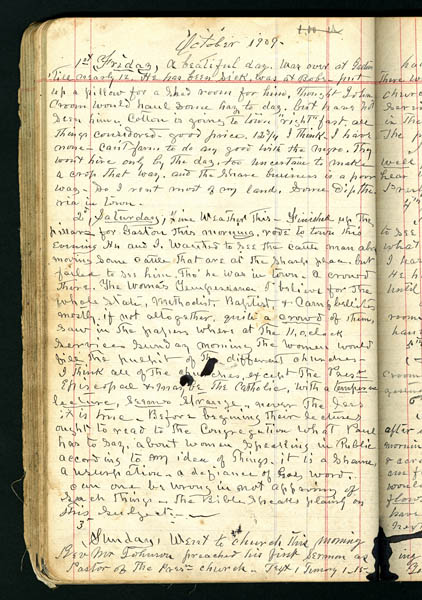 October 1909.
1st Friday, A beautiful day. Was over at
'till nearly 12. He has been sick, was at Robs - put
up a pillow for a shed room for him, thought John
Croom would haul some hay to day. but have not
seen him. Cotton is going to town "right" fast, all
things considered - good price. 12¾ I think. I have
none - can't farm to do any good with the negro. They
won't hire only by the day, too uncertain to make
a crop that way. and the share business is a poor
way. So I rent most of my land. Some Diptheria
in town.
2 Saturday, Fine Weather This - Finished up the
pillars for Gaston this morning, rode to town this
Evening H4 and I. Wanted to see the cattle man about
moving some cattle that are at the Sharp place. but
failed to see him, tho' he was in town. A crowd
there. The Woman's Temperance I believe for the
whole State, Methodist, Baptist, & Campbellites
mostly, if not altogether, quite a crowd of them,
saw in the papers where at the 11, o,clock
services Sunday morning the women would
fill the pulpit of the different churches -
I think all of the churches, except the Pres-
Episcopal & maybe the Catholic, with a temperance
lecture, seems strange, never the less
it is true - Before begining their lectures
ought to read to the Congregation what Paul
has to say, about women speaking in Public
according to my idea of things, it is a shame,
a usurpation - a defiance of Gods word.
can one be wrong in not approving of
such things - the Bible speaks plainly on
this subject -
3
Sunday, Went to church this morning
Rev Mr Johnson preached his first sermon as
Pastor of the Presn church - Text 1 Timony 1-15-